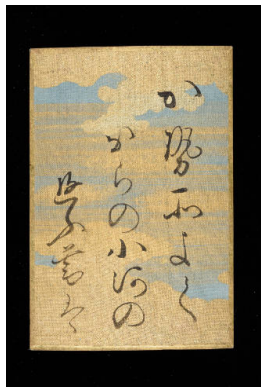 か勢所よく
ならの小河の
ゆふ暮は